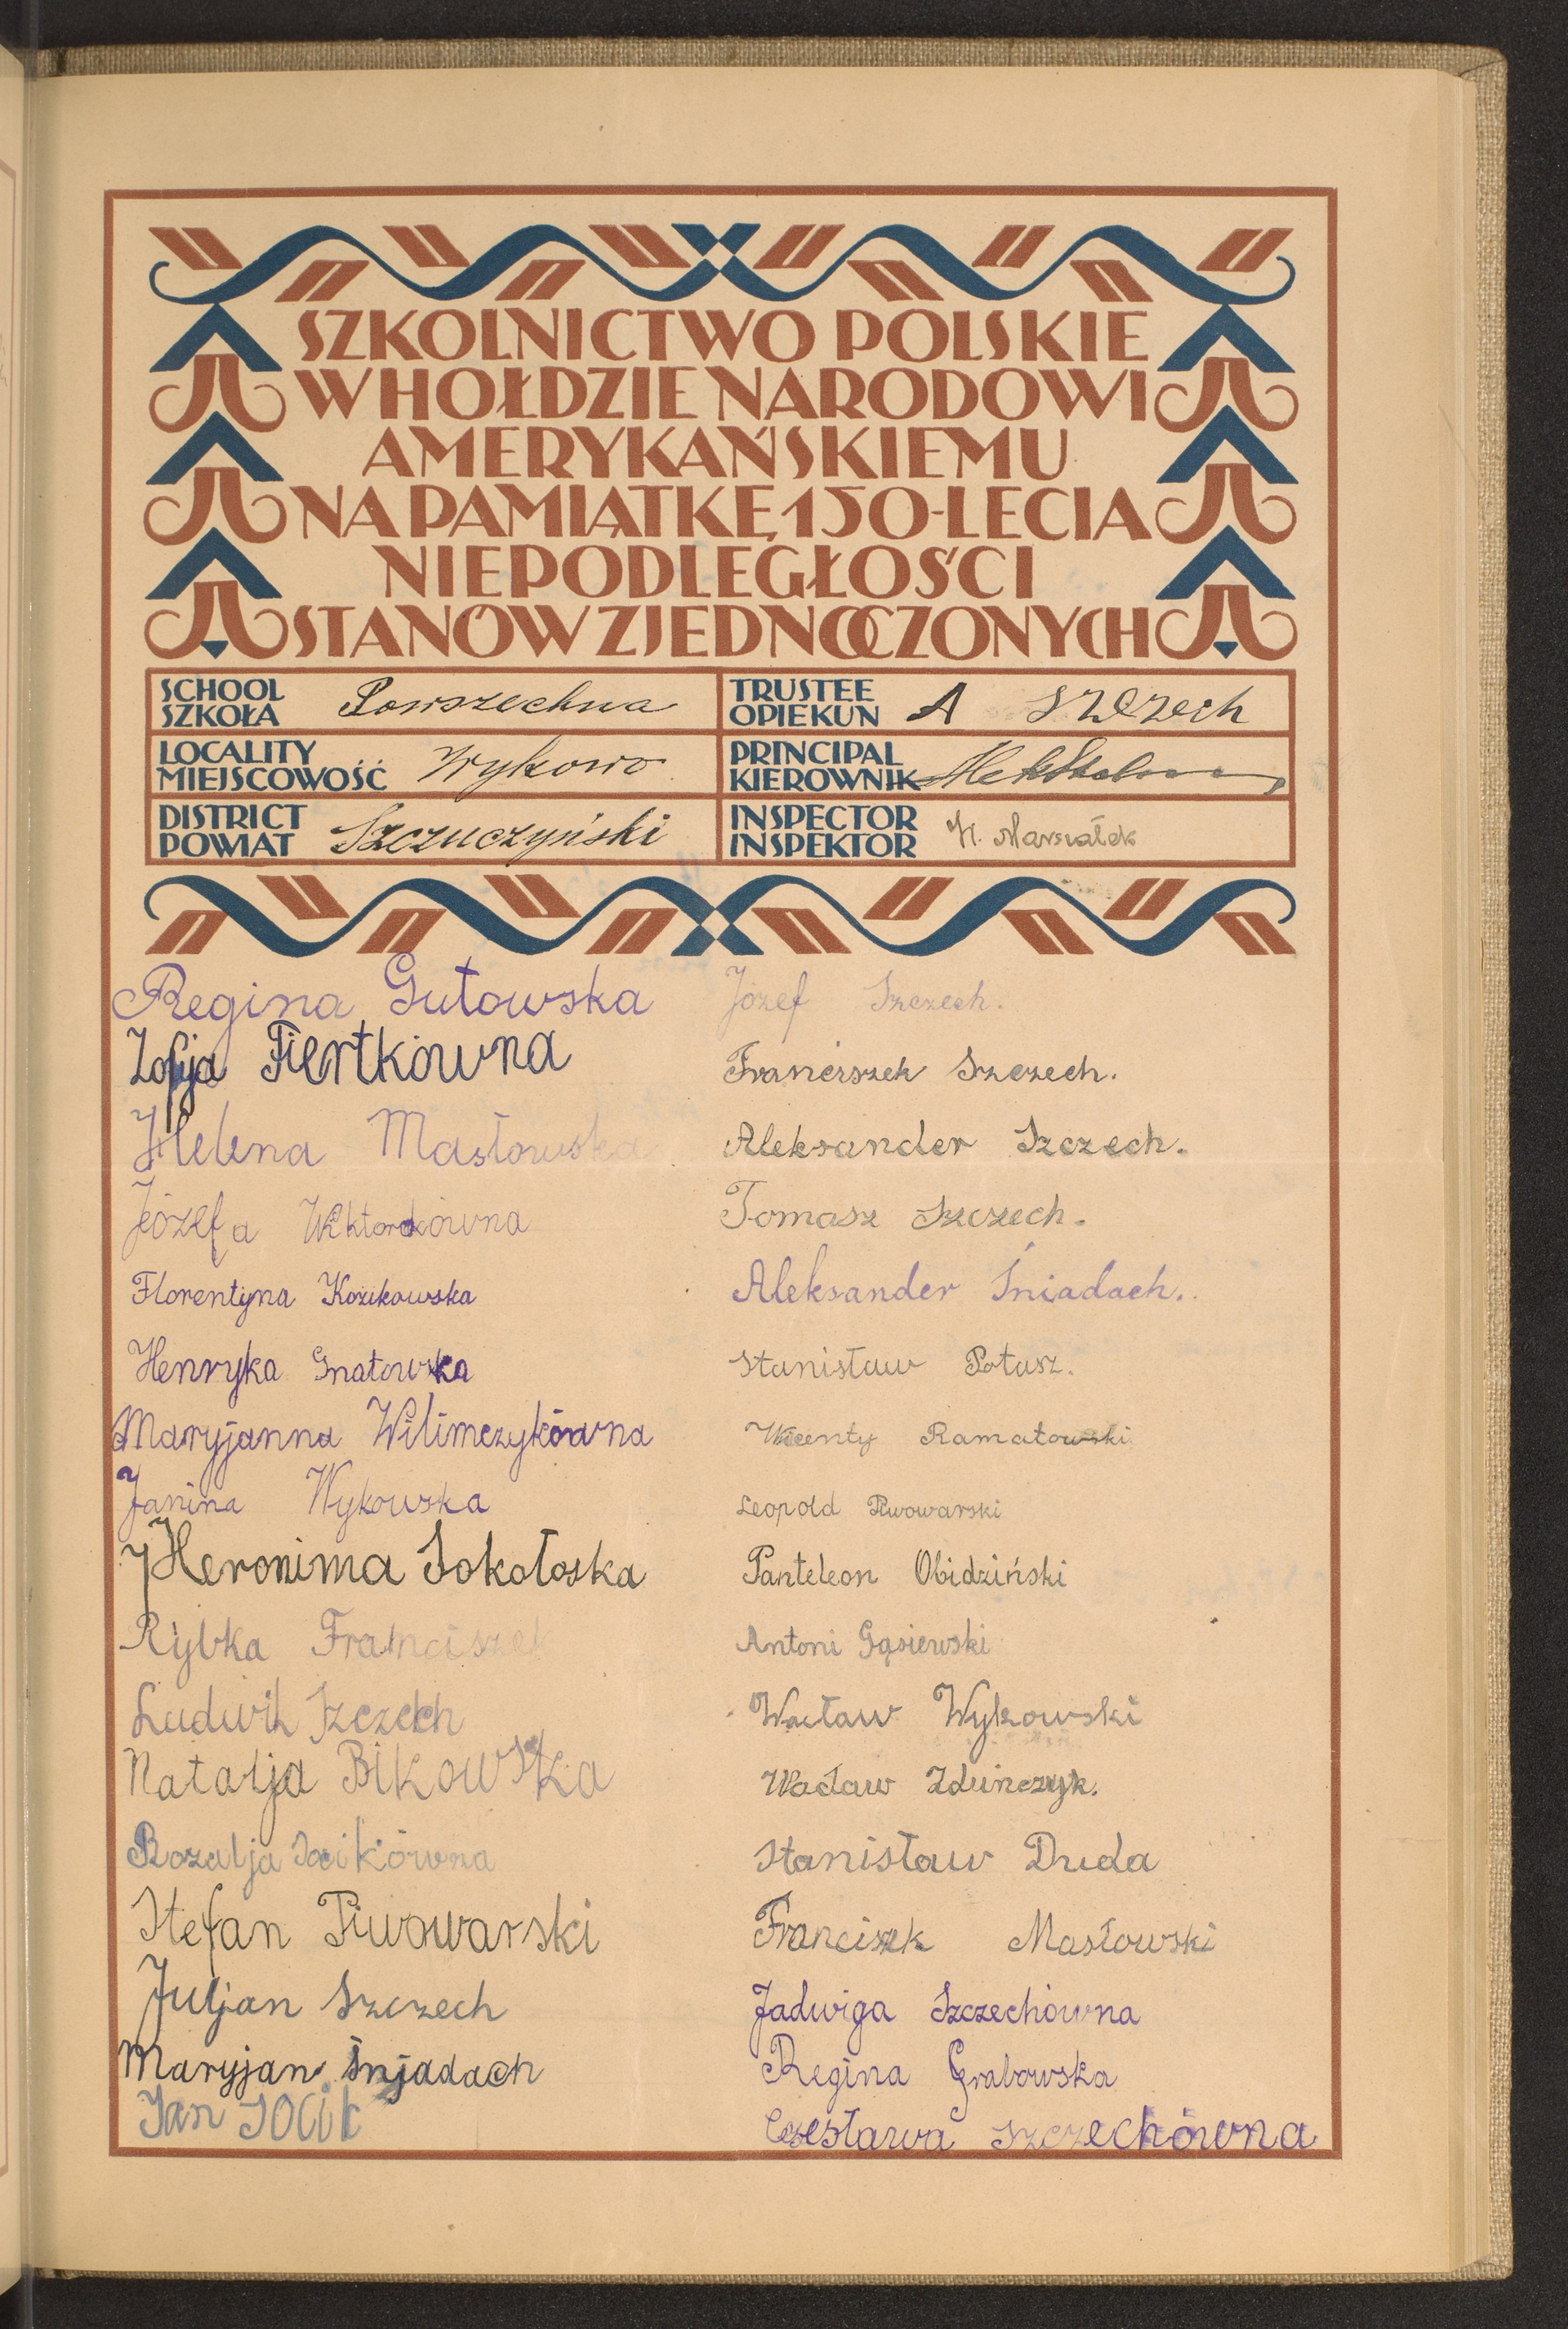 SZKOLNICTWO POLSKIE
W HOŁDZIE NARODOWI
AMERYKAŃSKIEMU
NA PAMIĄTKĘ 150-LECIA
NIEPODLEGŁOŚCI
STANÓW ZJEDNOCZONYCH
SCHOOL
SZKOŁA Powszechna
TRUSTEE
OPIEKUN A Szczech
LOCALITY
MIEJSCOWOŚĆ Wykowo
PRINCIPAL
KIEROWNIK
DISTRICT
POWIAT Szczuczyński
INSPECTOR
INSPEKTOR H. Marszałek
Regina Gutowska
Zofja Fiertkówna
Helena Masłowska
Józefa Wiktorkówna
Florentyna Kozikowska
Henryka Gnatowska
Maryjanna Wilimczykówna
Janina Wykowska
Heronima Sokołoska
Rybka Franciszek
Ludwik Szczech
Natalja Bikowska
Rozalja Socikówna
Stefan Piwowarski
Juljan Szczech
Maryjan Śnjadach
Jan Socik
Józef Szczech.
Franciszek Szczech.
Aleksander Szczech.
Tomasz Szczech.
Aleksander Śniadach.
Stanisław Potasz.
Wicenty Ramatowski
Leopold Piwowarski
Panteleon Obidziński
Antoni Gąsiewski
Wacław Wykowski
Wacław Zduńczyk.
Stanisław Duda
Franciszek Masłowski
Jadwiga Szczechówna
Regina Grabowska
Czesława Szczechówna